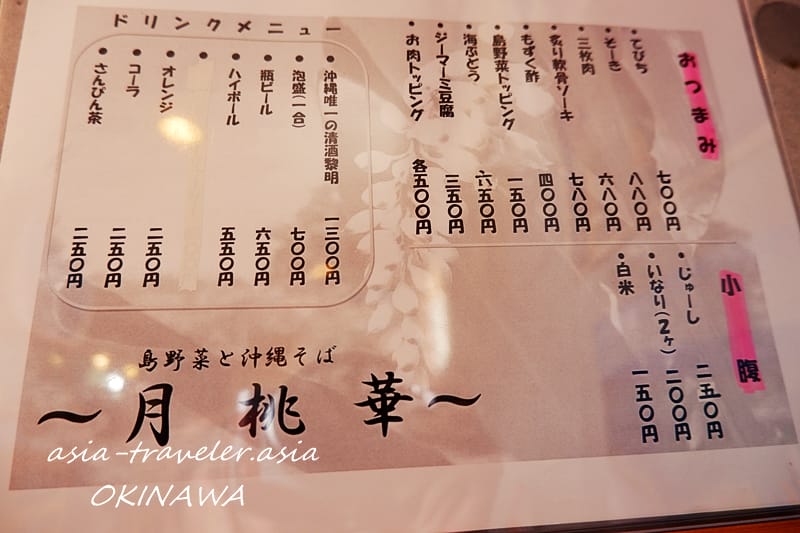 おつまみ
・てびち 七〇〇円
・そーき 八八〇円
・三枚肉 六八〇円
・炙り軟骨ソーキ 七八〇円
・もずく酢 四〇〇円
・島野菜トッピング 一五〇円
・海ぶどう 六五〇円
・ジーマーミ豆腐 三五〇円
・お肉トッピング 各五〇〇円
小腹
・じゅーし 二五〇円
・いなり(2ヶ) 二〇〇円
・白米 一五〇円
ドリンクメニュー
・沖縄唯一の清酒黎明 一三〇〇円
・泡盛(一合) 七〇〇円
・瓶ビール 六五〇円
・ハイボール 五五〇円
・
・オレンジ 二五〇円
・コーラ 二五〇円
・さんぴん茶 二五〇円
島野菜と沖縄そば
～月桃華～
asia-traveler.asia
OKINAWA